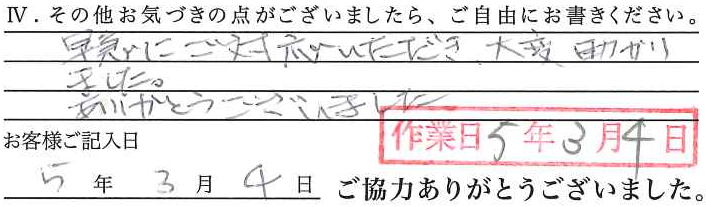 Ⅳ．その他お気づきの点がございましたら、ご自由にお書きください。
早急にご対応いただき、大変助かり
ました。
ありがとうございました
お客様ご記入日
作業日5年3月4日
5年3月4日 ご協力ありがとうございました。